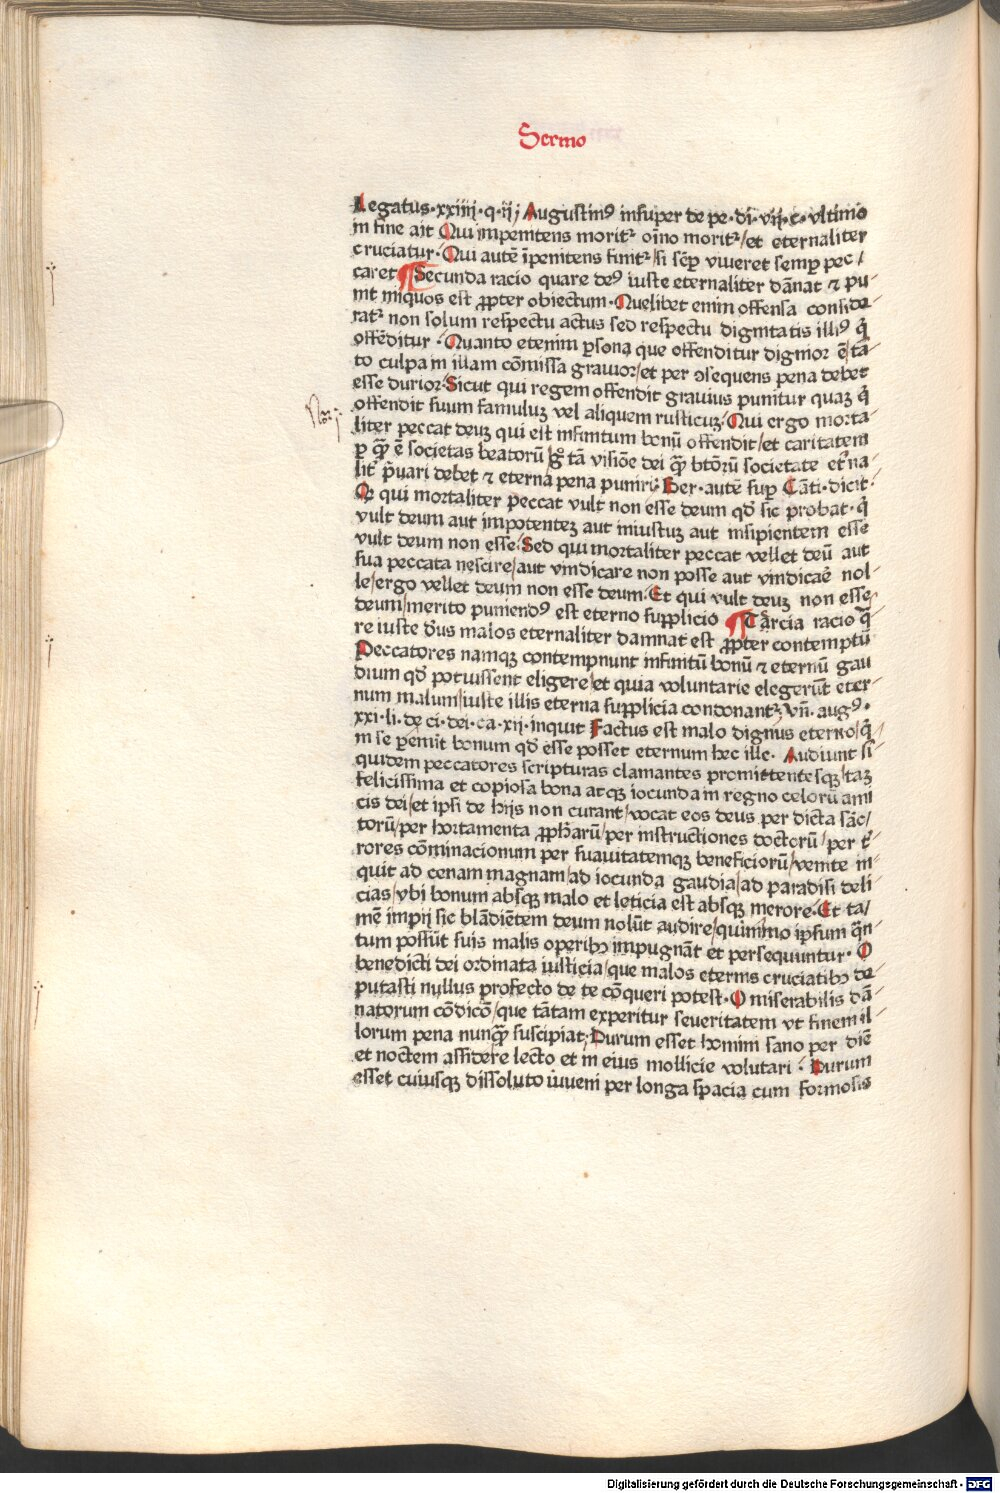 Sermo
Legatus·xxiiij·q·ij Augustinꝰ insuper de pe·di·vij·c·vltimo
in fine ait Qui impenitens moritᷣ oīno moritᷣ/et eternaliter
cruciatur·Qui autē īpenitens finitᷣ/si sēꝑ viueret semꝑ pec/
caret ¶Secunda racio quare deꝰ iuste eternaliter dānat ⁊ pu-
nit iniquos est ꝓpter obiectum·Quelibet enim offensa conside-
ratᷣ non solum respectu actus sed respectu dignitatis illiꝰ q̄
offēditur·Quanto etenim ꝑsona que offenditur dignior ē/tā-
to culpa in illam cōmissa grauior/et per ↄsequens pena debet
esse durior·Sicut qui regem offendit grauius punitur quaꝫ q̄
offendit suum famuluꝫ vel aliquem rusticuꝫ·Qui ergo morta-
liter peccat deuꝫ qui est infinitum bonū offendit/et caritatem
ꝑ quā ē societas beatorū/gͦ tā visiōe dei quā btōrū societate et̄na-
lit̄ pͥuari debet ⁊ eterna pena puniri Ber·autē suꝑ Cāti·dicit·
Qꝛ qui mortaliter peccat vult non esse deum qd̄ sic probat·q̄
vult deum aut impotenteꝫ aut iniustuꝫ aut insipientem esse
vult deum non esse·Sed qui mortaliter peccat vellet deū aut
sua peccata nescire/aut vindicare non posse aut vindicaē nol-
le/ergo vellet deum non esse deum·Et qui vult deuꝫ non esse
deum/merito puniendꝰ est eterno supplicio ¶Tercia racio qua-
re iuste dn̄s malos eternaliter damnat est ꝓpter contemptū
Peccatores namqꝫ contempnunt infinitū bonū ⁊ eternū gau
dium qd̄ potuissent eligere/et quia voluntarie elegerūt eter-
num malum/iuste illis eterna supplicia condonantᷣ·vn̄·augꝰ·
xxi·li·de ci·dei·ca·xij·inquit Factus est malo dignus eterno/q̄
in se ꝑemit bonum qd̄ esse posset eternum hec ille· Audiunt si
quidem peccatores scripturas clamantes promittentesqꝫ/taꝫ
felicissima et copiosa bona atqꝫ iocunda in regno celorū ami
cis dei/et ipsi de hijs non curant/vocat eos deus per dicta sāc/
torū/per hortamenta ꝓphārū/per instructiones doctorū/per t̄-
rores cōminacionum per suauitatemqꝫ beneficiorū/venite in-
quit ad cenam magnam/ad iocunda gaudia/ad paradisi deli
cias/vbi bonum absqꝫ malo et leticia est absqꝫ merore·Et ta/
mē impij sic blādiētem deum nolūt audire/quinimmo ipsum quā-
tum possūt suis malis operibꝫ impugnāt et persequuntur· O
benedicti dei ordinata iusticia/que malos eternis cruciatibꝫ de
putasti nullus profecto de te cōqueri potest·O miserabilis dā-
natorum cōdicō/que tātam experitur seueritatem vt finem il-
lorum pena nunquā suscipiat·Durum esset homini sano per diē
et noctem assidere lecto et in eius mollicie volutari·Durum
esset cuiusqꝫ dissoluto iuueni per longa spacia cum formosis
Digitalisierung gefördert durch die Deutsche Forschungsgemeinschaft - DFG